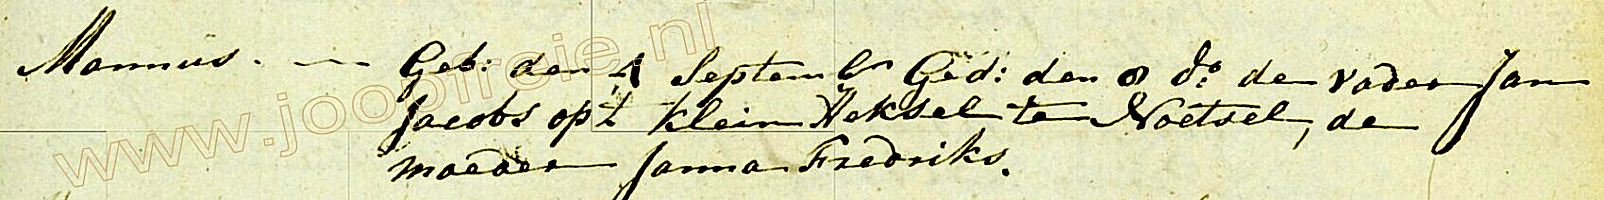 Mannus. — Geb: den 1 Septemb^r Ged: den 8 d:^o de vader Jan
Jacobs op't klein Heksel te Noetsel, de
moeder Janna Fredriks.
www.joopfraje.nl